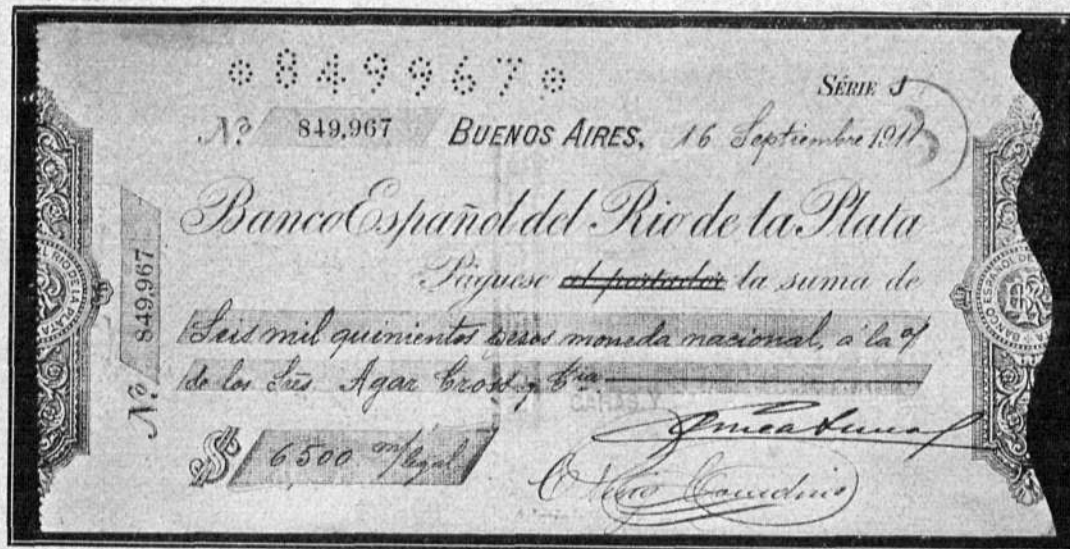 *849967*
SÉRIE J
Nº 849,967 BUENOS AIRES, 16 Septiembre 1911
Banco Español del Rio de la Plata
Páguese al portador la suma de
Seis mil quinientos pesos moneda nacional, á la o/
de los Srs. Agar Cross y Cia
$ 6500 m/legal
Nº 849,967
L RIO DE LA PLATA
BANCO ESPAÑOL DE